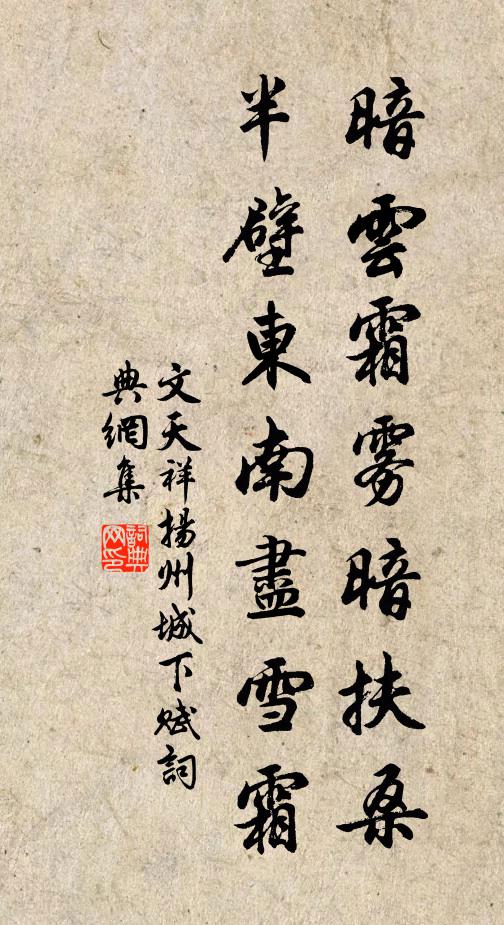 暗雲霜雾暗扶桑
半壁東南盡雪霜
文天祥揚州城下赋詞
典網集
詞典網印